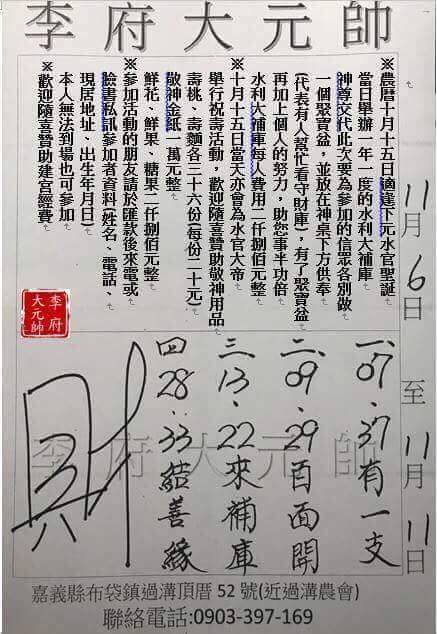 李府大元帥
※農曆十月十五日適逢下元水官聖誕
當日舉辦一年一度的水利大補庫
神尊交代此次要為參加的信眾各別做
一個聚寶盆，並放在神桌下方供奉
（代表有人幫忙看守財庫），有了聚寶盆
再加上個人的努力，助您事半功倍
水利大補庫每人費用二仟捌佰元整
※十月十五日當天亦會為水官大帝
舉行祝壽活動，歡迎隨喜贊助敬神用品
壽桃、壽麵各三十六份(每份二十元)
敬神金紙一萬元整
鮮花、鮮果、糖果二仟捌佰元整
※參加活動的朋友請於匯款後來電或
臉書私訊參加者資料(姓名、電話、
現居地址、出生年月日)
本人無法到場也可參加
※歡迎隨喜贊助建宮經費
11月6日至11月11日
李府
大元帥
一、07、37有一支
二、09、29百面開
三、13、22來補庫
四、28、33結善緣
財
李府大元帥
嘉義縣布袋鎮過溝頂厝 52 號(近過溝農會)
聯絡電話:0903-397-169